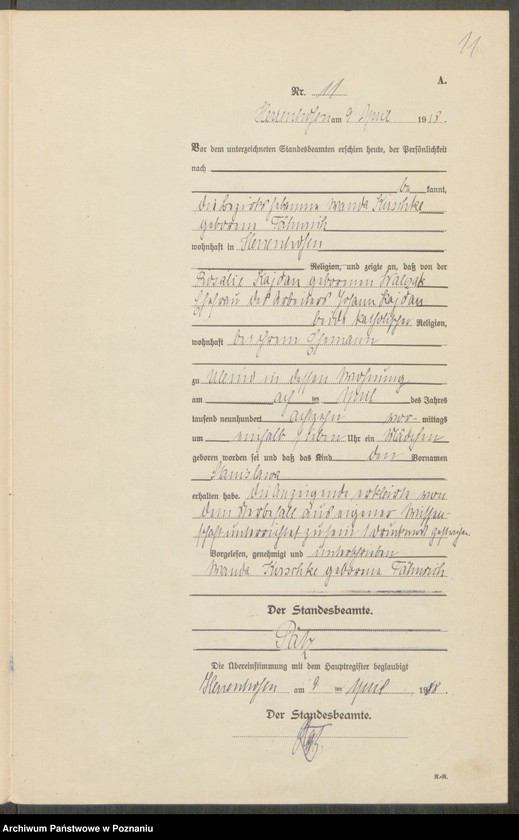 11.
A.
Nr. 11
Herrenhofen am 9 April 1918.
Vor dem unterzeichneten Standesbeamten erschien heute, der Persönlichkeit
nach
be kannt,
die Bezirkshebamme Wanda Kirschke
geborene
wohnhaft in Herrenhofen
Religion, und zeigte an, daß von der
Rosalie Kajdan geborenen
Ehefrau des Arbeiters Johann Kajdan
beide katholischer Religion,
wohnhaft bei ihrem Ehemann
zu in dessen Wohnung
am acht im April des Jahres
tausend neunhundert achtzehn vor- mittags
um einhalb sieben Uhr ein Mädchen
geboren worden sei und daß das Kind den Vornamen
Stanislawa
erhalten habe. Die Anzeigende erklärte von
dem aus eigener Wissen-
schaft unterrichtet zu sein. 1 Druckwort gestrichen.
Vorgelesen, genehmigt und unterschrieben
Wanda Kirschke geborene
Der Standesbeamte.
Die Übereinstimmung mit dem Hauptregister beglaubigt
Herrenhofen am 9 im April 1918.
Der Standesbeamte.
Archiwum Państwowe w Poznaniu